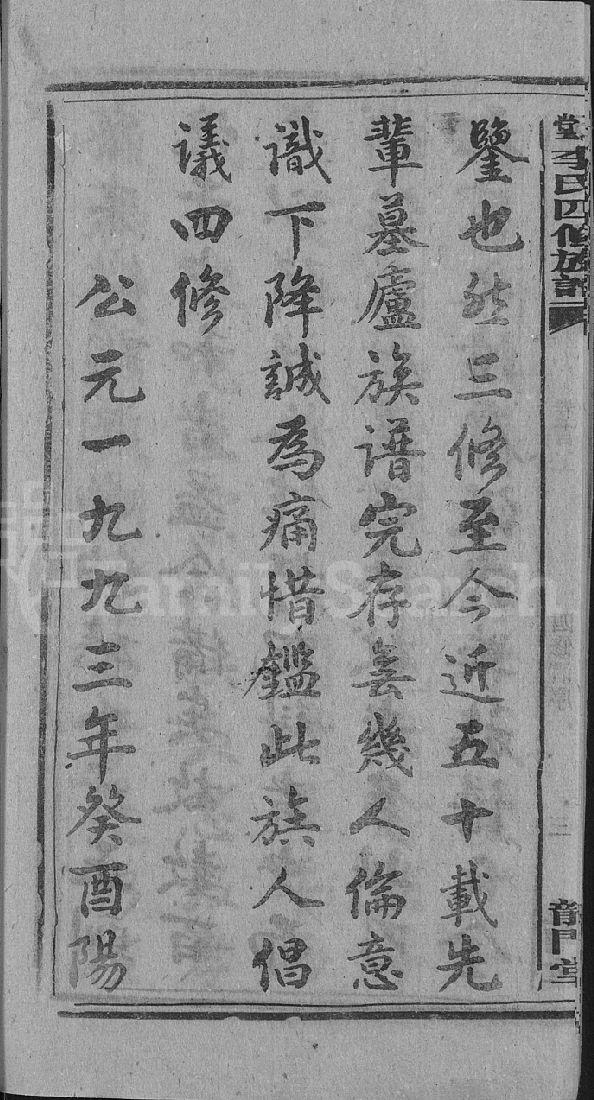 李氏四修族譜
龍門堂
鑒也然三修至今近五十載先
輩墓廬族谱完存無幾人倫意
識下降誠為痛惜鑑此族人倡
議四修
公元一九九三年癸酉陽
FamilySearch